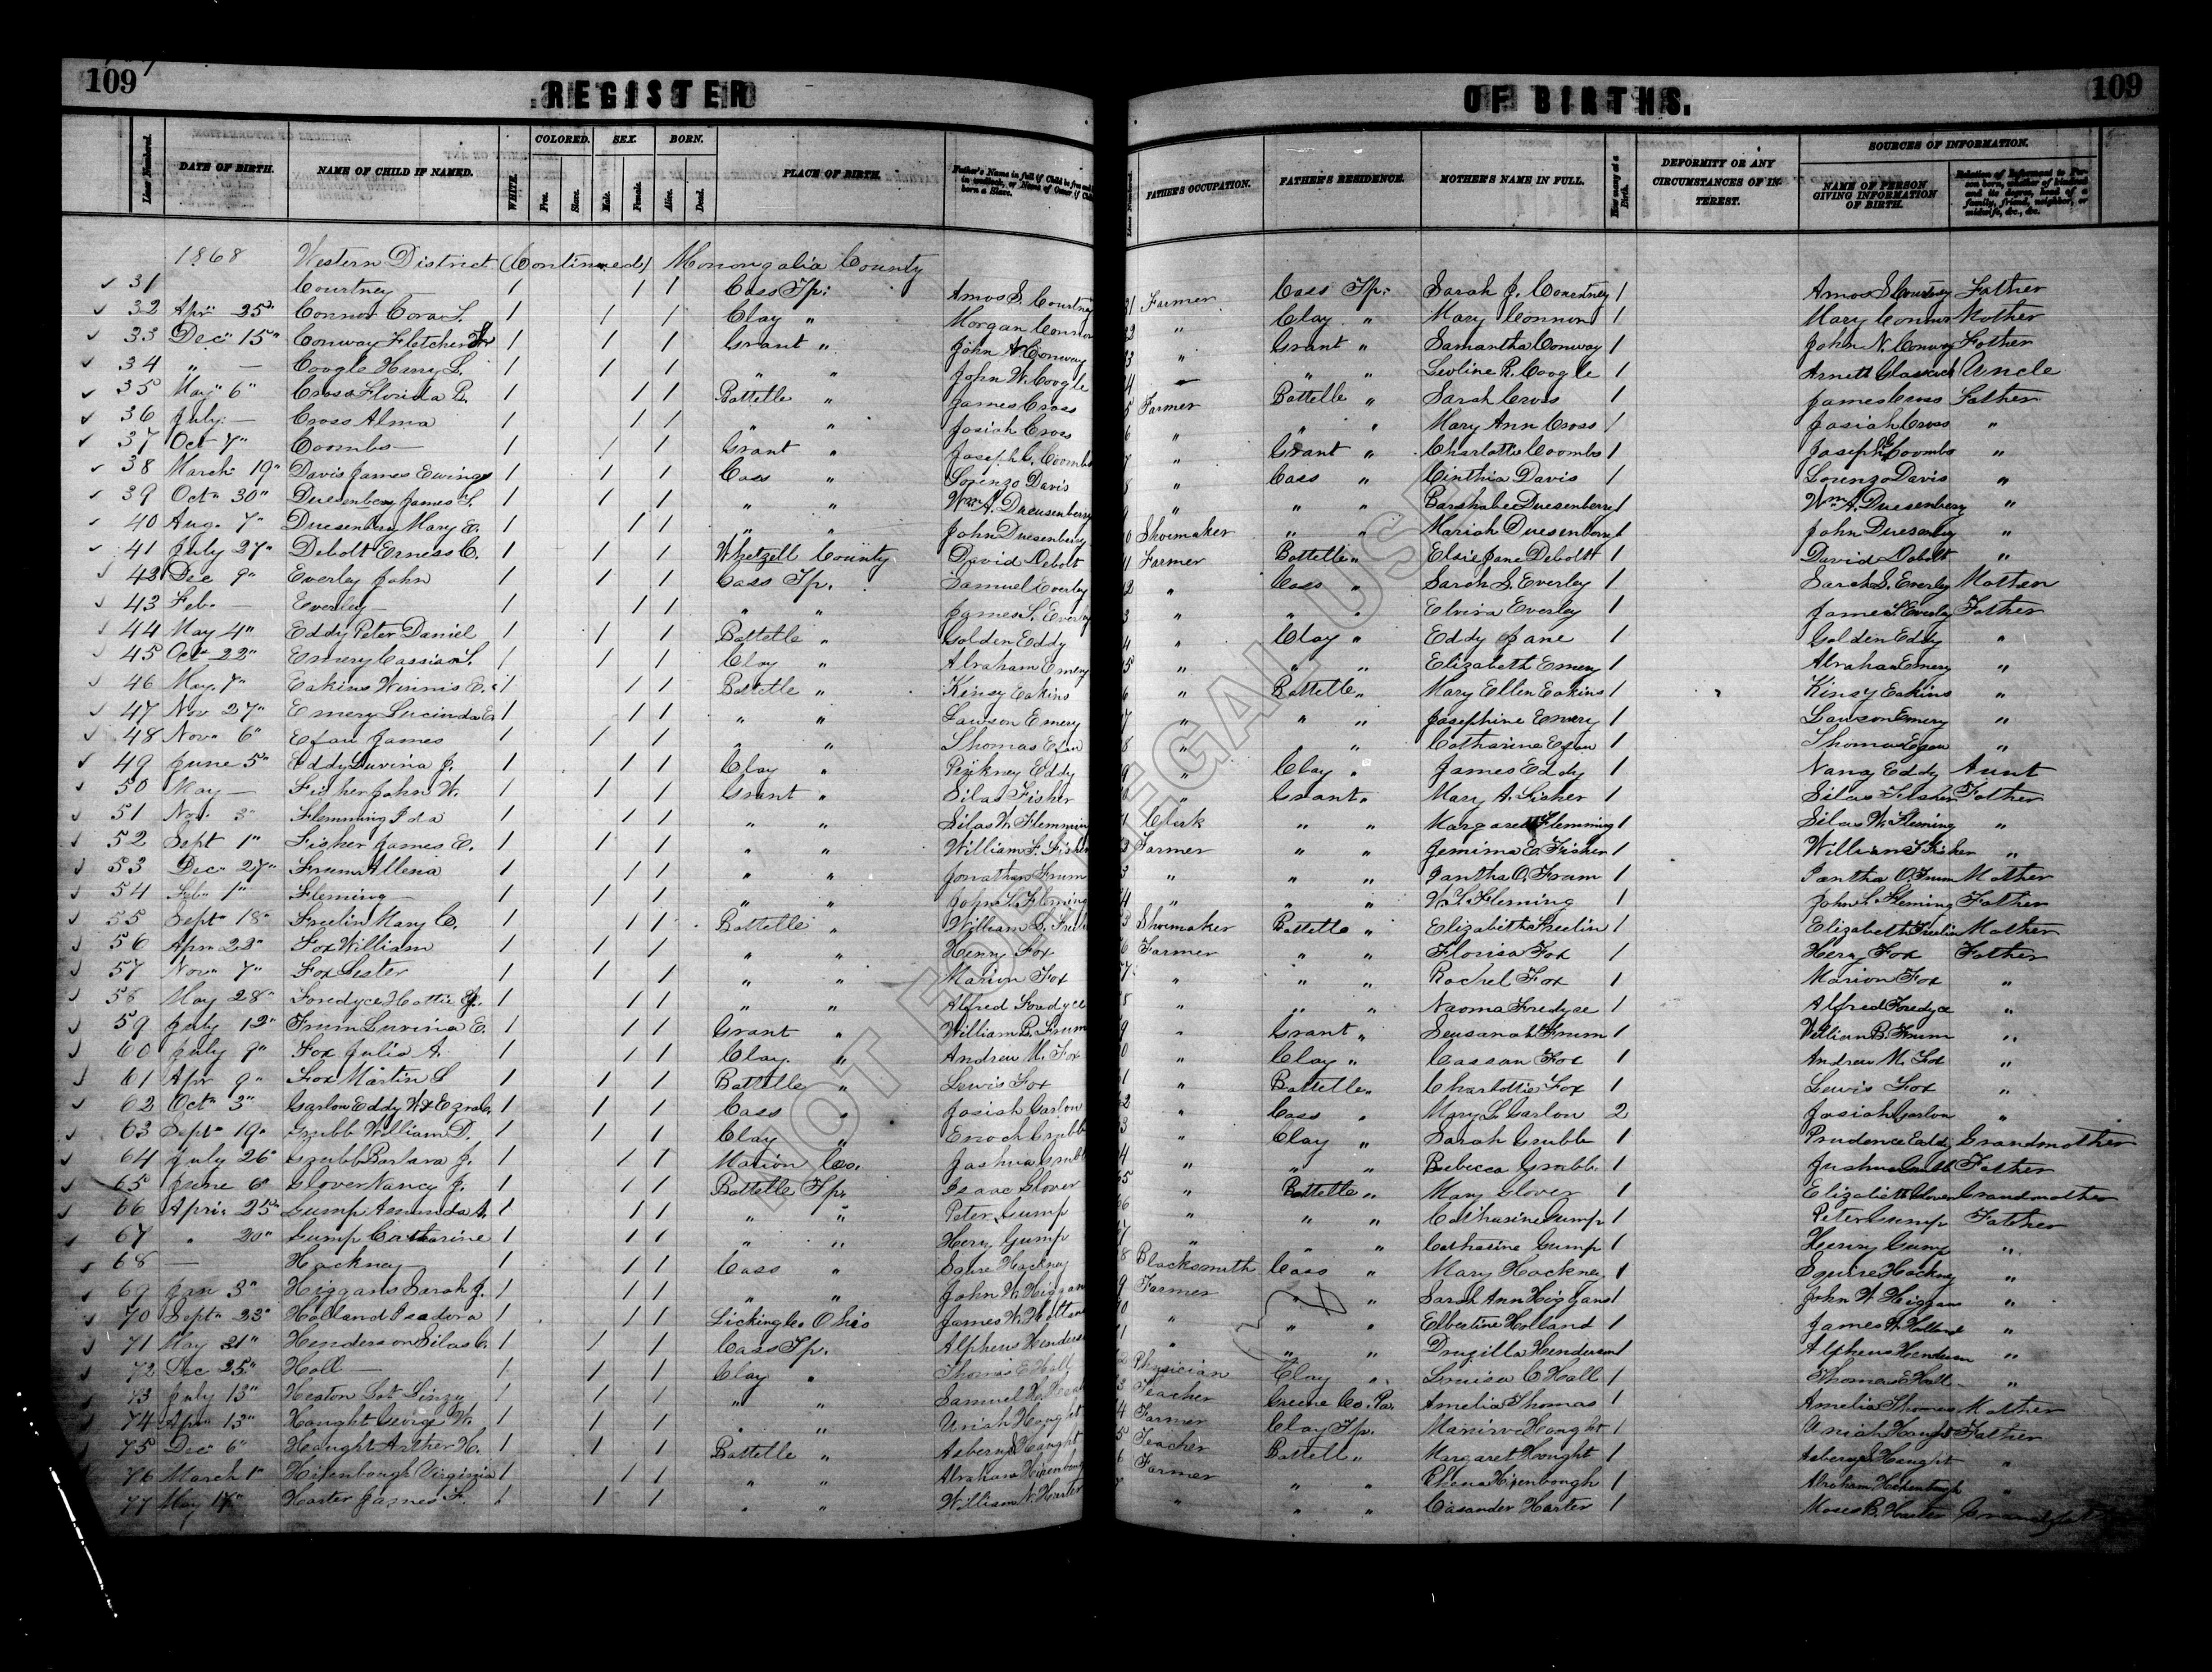 109
REGISTER OF BIRTHS.
109
Lines Numbered. DATE OF BIRTH. NAME OF CHILD IF NAMED. WHITE. COLORED. Free. Slave. SEX. Male. Female. BORN. Alive. Dead. PLACE OF BIRTH. Father's Name in full if Child is free and born in wedlock, or Name of Owner if Child born a Slave.
Lines Numbered. FATHER'S OCCUPATION. FATHER'S RESIDENCE. MOTHER'S NAME IN FULL. How many at a Birth. DEFORMITY OR ANY CIRCUMSTANCES OF INTEREST. SOURCES OF INFORMATION. NAME OF PERSON GIVING INFORMATION OF BIRTH. Relation of Informant to Person born, whether of kindred and its degree, head of a family, friend, neighbor, or midwife, &c., &c.
1868 Western District (Continued) Monongalia County
31 Courtney — 1 1 1 Cass Tp. Amos S. Courtney Farmer Cass Tp. Sarah J. Courtney 1 Amos S Courtney Father
32 Apr 25" Connor Cora L. 1 1 1 Clay " Morgan Connor " Clay " Mary Connor 1 Mary Connor Mother
33 Dec 15" Conway Fletcher 1 1 1 Grant " John N Conway " Grant " Samantha Conway 1 John N. Conway Father
34 " — Coogle Henry L. 1 1 1 " " John W. Coogle — " " Livline R. Coogle 1 Arnett Uncle
35 May 6" Cross Florida B. 1 1 1 Battelle " James Cross Farmer Battelle " Sarah Cross 1 James Cross Father
36 July — Cross Alma 1 1 1 " " Josiah Cross " " " Mary Ann Cross 1 Josiah Cross "
37 Oct 7" Coombs — 1 1 1 Grant " Joseph C. Coombs " Grant " Charlotte Coombs 1 Joseph Coombs "
38 March 19" Davis James Ewing 1 1 1 Cass " Lorenzo Davis " Cass " Cinthia Davis 1 Lorenzo Davis "
39 Oct 30" Duesenberry James L. 1 1 1 " " Wm A. Dreusenberry " " " Barshabe Duesenberry 1 Wm A. Duesenberry "
40 Aug. 7" Duesenbery Mary E. 1 1 1 " " John Duesenberry Shoemaker " " Mariah Duesenberry 1 John Duesenbery "
41 July 27" Debolt Erness C. 1 1 1 Whetzell County David Debolt Farmer Battelle " Elsie Jane Debolt 1 David Debolt "
42 Dec 9" Everley John 1 1 1 Cass Tp. Samuel Everley " Cass " Sarah S. Everley 1 Sarah S. Everley Mother
43 Feb. — Everley — 1 1 1 " " James L. Everley " " " Elvira Everley 1 James L Everley Father
44 May 4" Eddy Peter Daniel 1 1 1 Battelle " Golden Eddy " Clay " Eddy Jane 1 Golden Eddy "
45 Oct 22" Emery Cassian L. 1 1 1 Clay " Abraham Emery " " " Elizabeth Emery 1 Abraham Emery "
46 May 7" Eakins Winnis E. 1 1 1 Battelle " Kinsy Eakins " Battelle " Mary Ellen Eakins 1 Kinsy Eakins "
47 Nov 27" Emery Lucinda E. 1 1 1 " " Lawson Emery " " " Josephine Emery 1 Lawson Emery "
48 Nov 6" Efau James 1 1 1 " " Thomas Efau " " " Catharine Efau 1 Thomas "
49 June 5" Eddy Luvina J. 1 1 1 Clay " Pinkney Eddy " Clay " James Eddy 1 Nancy Eddy Aunt
50 May — Fisher John W. 1 1 1 Grant " Silas Fisher " Grant " Mary A. Fisher 1 Silas Fisher Father
51 Nov 3" Flemming Ida 1 1 1 " " Silas W. Flemming Clerk " " Margaret Flemming 1 Silas W. Fleming "
52 Sept 1" Fisher James E. 1 1 1 " " William F. Fisher Farmer " " Jemima E. Fisher 1 William F Fisher "
53 Dec 27" Frum Allena 1 1 1 " " Jonathan Frum " " " Pantha O. Frum 1 Pantha O. Frum Mother
54 Feb 1" Fleming — 1 1 1 " " John L. Fleming " " " Fleming 1 John L Fleming Father
55 Sept 18" Freelin Mary C. 1 1 1 Battelle " William Shoemaker Battelle " Elizabeth Freelin 1 Elizabeth Freelin Mother
56 Apr 23" Fox William 1 1 1 " " Henry Fox Farmer " " Florisa Fox 1 Henry Fox Father
57 Nov 7" Fox Lester 1 1 1 " " Marion Fox " " Rachel Fox 1 Marion Fox "
58 May 28" Foredyce Hattie J. 1 1 1 " " Alfred Foredyce " " " Naoma Fredyce 1 Alfred Foredyce "
59 July 12" Frum Luvina E. 1 1 1 Grant " William B. Frum " Grant " Seusanah Frum 1 William B. Frum "
60 July 9" Fox Julia A. 1 1 1 Clay " Andrew M. Fox " Clay " Cassan Fox 1 Andrew M. Fox "
61 Apr 9" Fox Martin L 1 1 1 Battelle " Lewis Fox " Battelle " Charlottie Fox 1 Lewis Fox "
62 Oct 3" Garlow Eddy W & Ezra C. 1 1 1 Cass " Josiah Garlow " Cass " Mary L. Garlow 2 Josiah Garlow "
63 Sept 19" Grubb William D. 1 1 1 Clay " Enoch Grubb " Clay " Sarah Grubb 1 Prudence Eddy Grandmother
64 July 26" Grubb Barbara J. 1 1 1 Marion Co. Joshua Grubb " " " Rebecca Grubb 1 Joshua Grubb Father
65 June 6" Glover Nancy J. 1 1 1 Battelle Tp. Isaac Glover " Battelle " Mary Glover 1 Elizabeth Glover Grandmother
66 April 25" Gump Amanda A. 1 1 1 " " Peter Gump " " " Catharine Gump 1 Peter Gump Father
67 " 20" Gump Catharine 1 1 1 " " Henry Gump " " " Catharine Gump 1 Henry Gump "
68 — Hackney — 1 1 1 Cass " Squire Hackney Blacksmith Cass " Mary Hackney 1 Squire Hackney "
69 Jan 3" Higgans Sarah J. 1 1 1 " " John W. Higgans Farmer " " Sarah Ann Higgans 1 John W Higgans "
70 Sept 23" Holland Isadora 1 1 1 Licking Co Ohio James W. Holland " " " Elbertine Holland 1 James W. Holland "
71 May 21" Henderson Silas C. 1 1 1 Cass Tp. Alpheus Henderson " " " Druzilla Henderson 1 Alpheus Henderson "
72 Dec 25" Hall — 1 1 1 Clay " Thomas E Hall Physician Clay " Louisa C Hall 1 Thomas E Hall "
73 July 13" Heaton Lot Linzy 1 1 1 " " Samuel Teacher Greene Co. Pa. Amelia Thomas 1 Amelia Thomas Mother
74 Apr 13" Haught George W. 1 1 1 " " Uriah Haught Farmer Clay Tp. Manirva Haught 1 Uriah Haught Father
75 Dec 6" Haught Arther H. 1 1 1 Battelle " Asbery Haught Teacher Battell " Margaret Haught 1 Asbery Haught "
76 March 1" Hixenbaugh Virginia 1 1 1 " " Abraham Hixenbaugh Farmer " " Phena Hixenbough 1 Abraham Hixenbaugh "
77 May 17" Harter James F. 1 1 1 " " William N. Harter " " " Casander Harter 1 Moses B. Harter
NOT FOR LEGAL USE